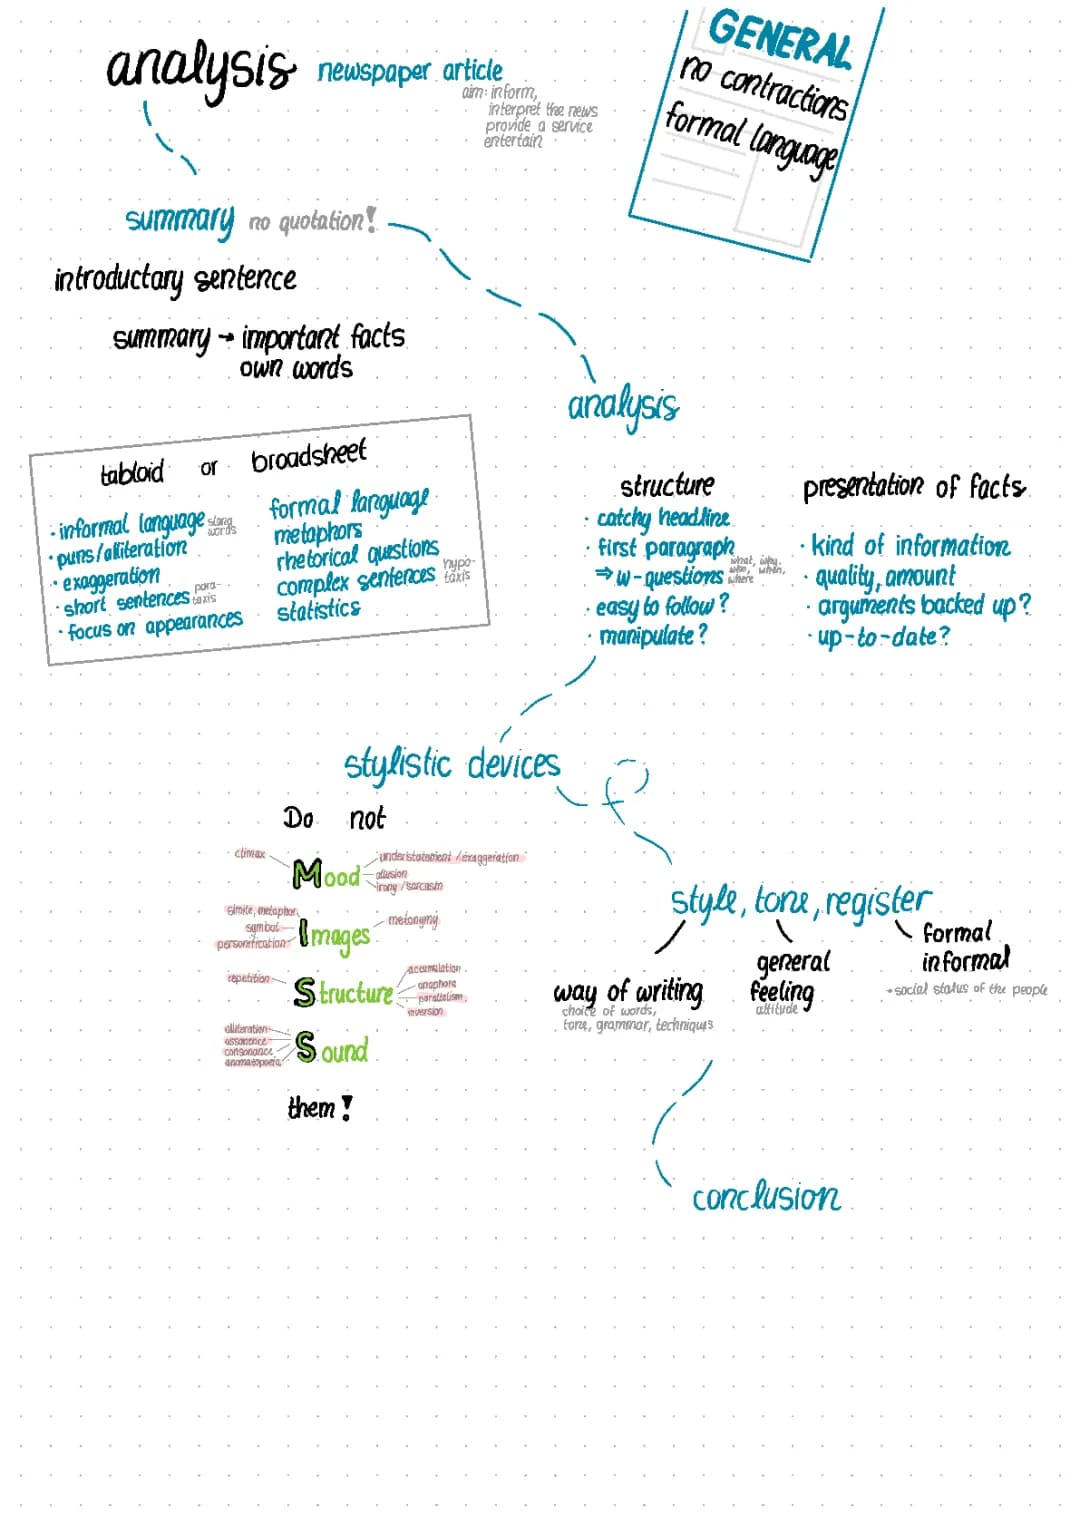 analysis newspaper article
aim: inform,
interpret the news
provide a service
entertain
GENERAL
no contractions
formal language
summary no quotation!
introductary sentence
summary → important facts
own words
analysis
tabloid or broadsheet
· informal language slang words
· puns/alliteration
· exaggeration
· short sentences para-taxis
· focus on appearances
formal language
metaphors
rhetorical questions
complex sentences hypo-taxis
statistics
structure
· catchy headline
· first paragraph
⇒ w-questions what, why, who, when, where
· easy to follow?
· manipulate?
presentation of facts
· kind of information
· quality, amount
· arguments backed up?
· up-to-date?
stylistic devices
Do not
climax
Mood
understatement / exaggeration
allusion
irony / sarcasm
simile, metaphor
symbol
personification
Images
metonymy
repetition
Structure
accumulation
anaphora
parallelism
inversion
alliteration
assonance
consonance
onomatopoeia
Sound
them!
style, tone, register
way of writing
choice of words,
tone, grammar, techniques
general
feeling
attitude
formal
informal
→ social status of the people
conclusion